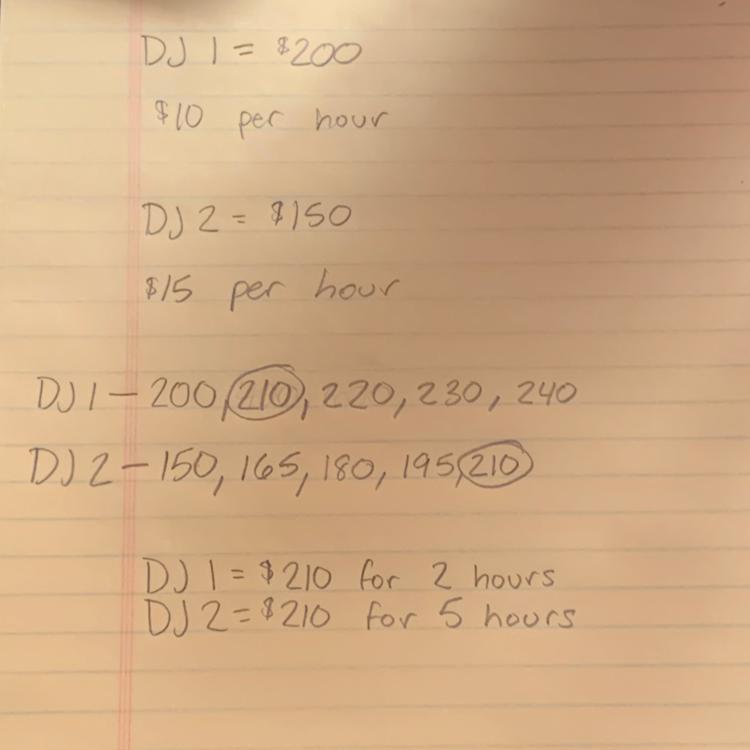 DJ 1 = $200
$10 per hour
DJ 2 = $150
$15 per hour
DJ 1 - 200, 210, 220, 230, 240
DJ 2 - 150, 165, 180, 195, 210
DJ 1 = $210 for 2 hours
DJ 2 = $210 for 5 hours